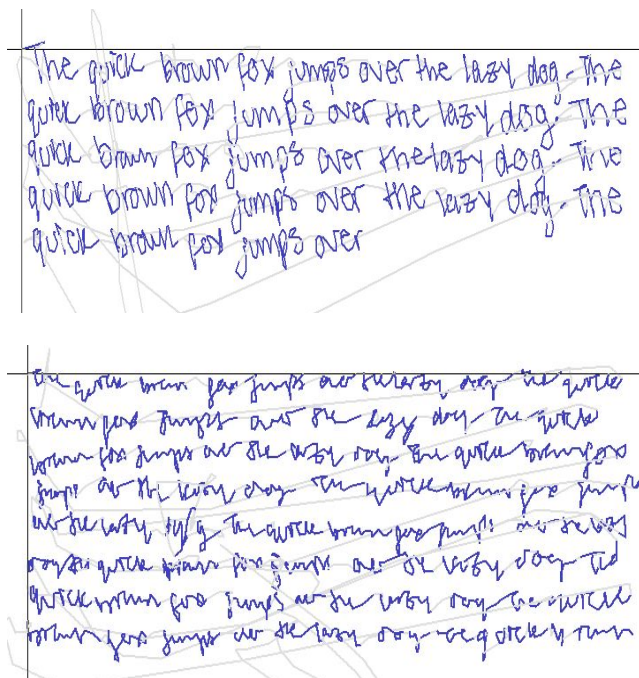 The quick brown fox jumps over the lazy dog. The
quick brown fox jumps over the lazy dog. The
quick brown fox jumps over the lazy dog. The
quick brown fox jumps over the lazy dog. The
quick brown fox jumps over
the quick brown fox jumps over the lazy dog the quick
brown fox jumps over the lazy dog the quick
brown fox jumps over the lazy dog the quick brown fox
jumps over the lazy dog the quick brown fox jumps
over the lazy the quick brown fox jumps over the lazy
dog the quick brown fox jumps over the lazy dog the
quick brown fox jumps over the lazy dog the quick
brown fox jumps over the lazy dog the quick